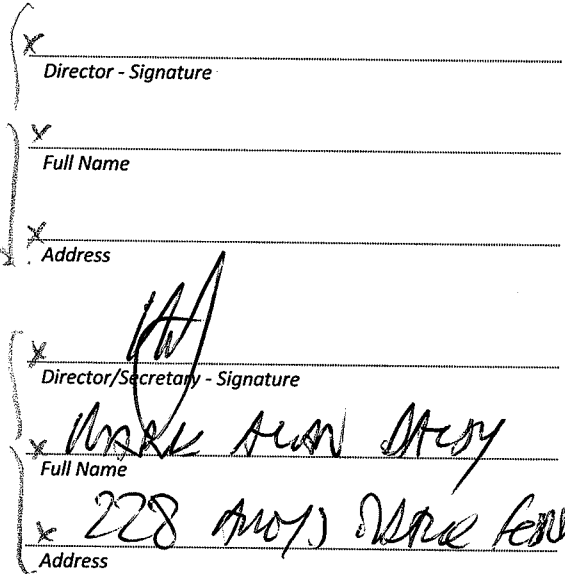 x
Director - Signature
x
Full Name
x
Address
x
Director/Secretary - Signature
x MARK ALAN
Full Name
x 228
Address